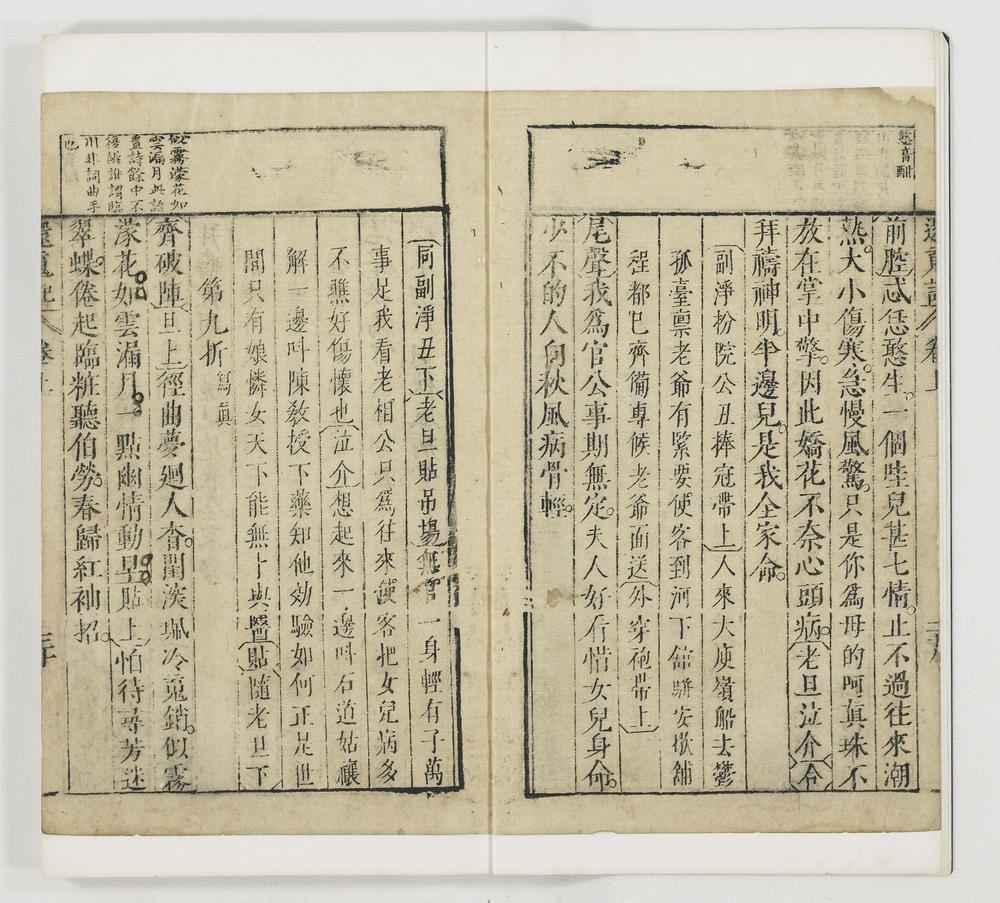 憨音酣
還魂記 卷上
前腔忒恁憨生一個哇兒甚七情止不過往來潮
熱大小傷寒急慢風驚只是你爲母的呵眞珠不
放在掌中擎因此嬌花不柰心頭病老旦泣介合
拜禱神明半邊兒是我全家命
副淨扮院公丑捧冠帶上人來大庾嶺船去鬱
孤臺禀老爺有緊要使客到河下館駢安歇舖
程都已齊備專候老爺面送外穿袍帶上
尾聲我爲官公事期無定夫人好看惜女兒身命
少不的人向秋風病骨輕
同副淨丑下老旦貼吊場無官一身輕有子萬
事足我看老相公只爲往來使客把女兒病多
不瞧好傷懷也泣介想起來一邊叫石道姑禳
解一邊叫陳敎授下藥知他効驗如何正是世
間只有娘憐女天下能無卜與醫貼隨老旦下
第九折 寫眞
齊破陣旦上徑曲夢廻人杳閨深珮冷䰟銷似霧
濛花如雲漏月一點幽情動早貼上怕待尋芳迷
翠蝶倦起臨粧聽伯勞春歸紅袖招
似霧濛花如
雲漏月此語
置詩餘中不
復辨誰謂臨
川非詞曲手
也
還魂記 卷上 三十